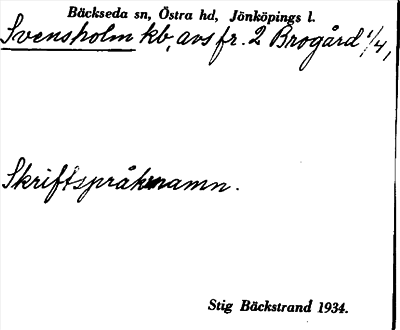 Bäckseda sn, Östra hd, Jönköpings l.
Svensholm kb, avs fr. 2 Brogård 1/4,
Skriftspråksnamn.
Stig Bäckstrand 1934.